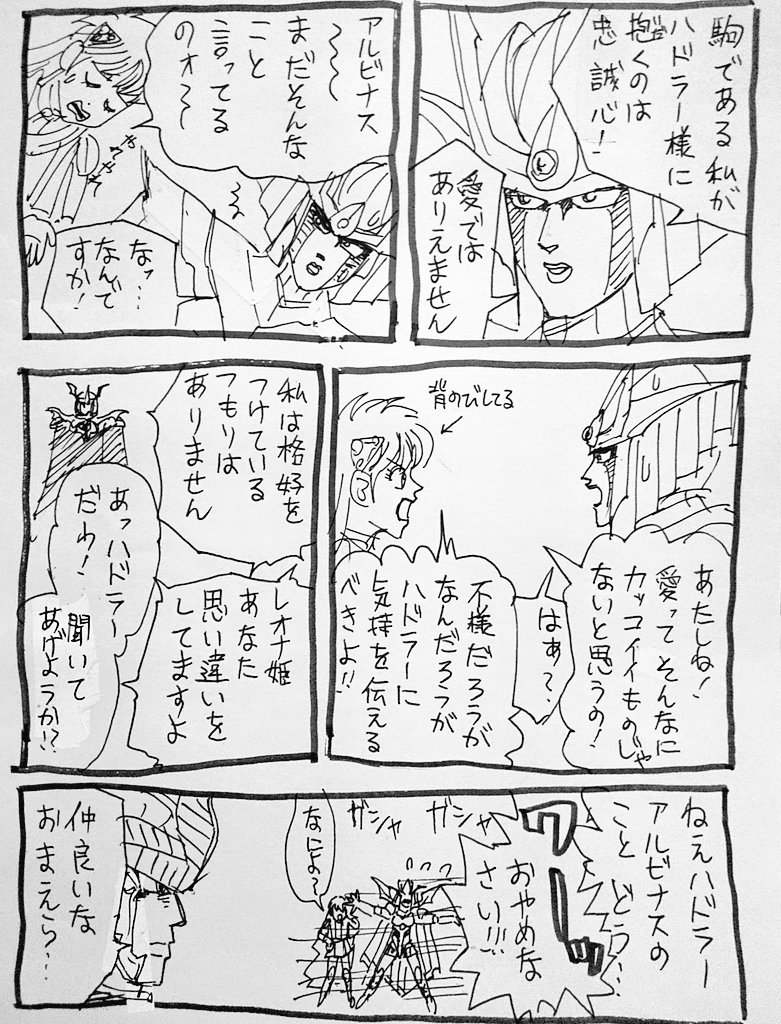 駒である私が
ハドラー様に
抱くのは
忠誠心!
愛では
ありえません
アルビナス
〜〜
まだそんな
こと
言ってる
のォ〜〜
なっ…
なんで
すか!
あたしね!
愛ってそんなに
カッコイイものじゃ
ないと思うの!
はぁ?
背のびしてる
不様だろうが
なんだろうが
ハドラーに
気持を伝える
べきよ!!
私は格好を
つけている
つもりは
ありません
レオナ姫
あなた
思い違いを
してますよ
あっハドラー
だわ!
聞いて
あげようか!?
ねえハドラー
アルビナスの
こと どう…
ワーッ
おやめな
さい!!!
ガシャ
ガシャ
なによ?
仲良いな
おまえら…